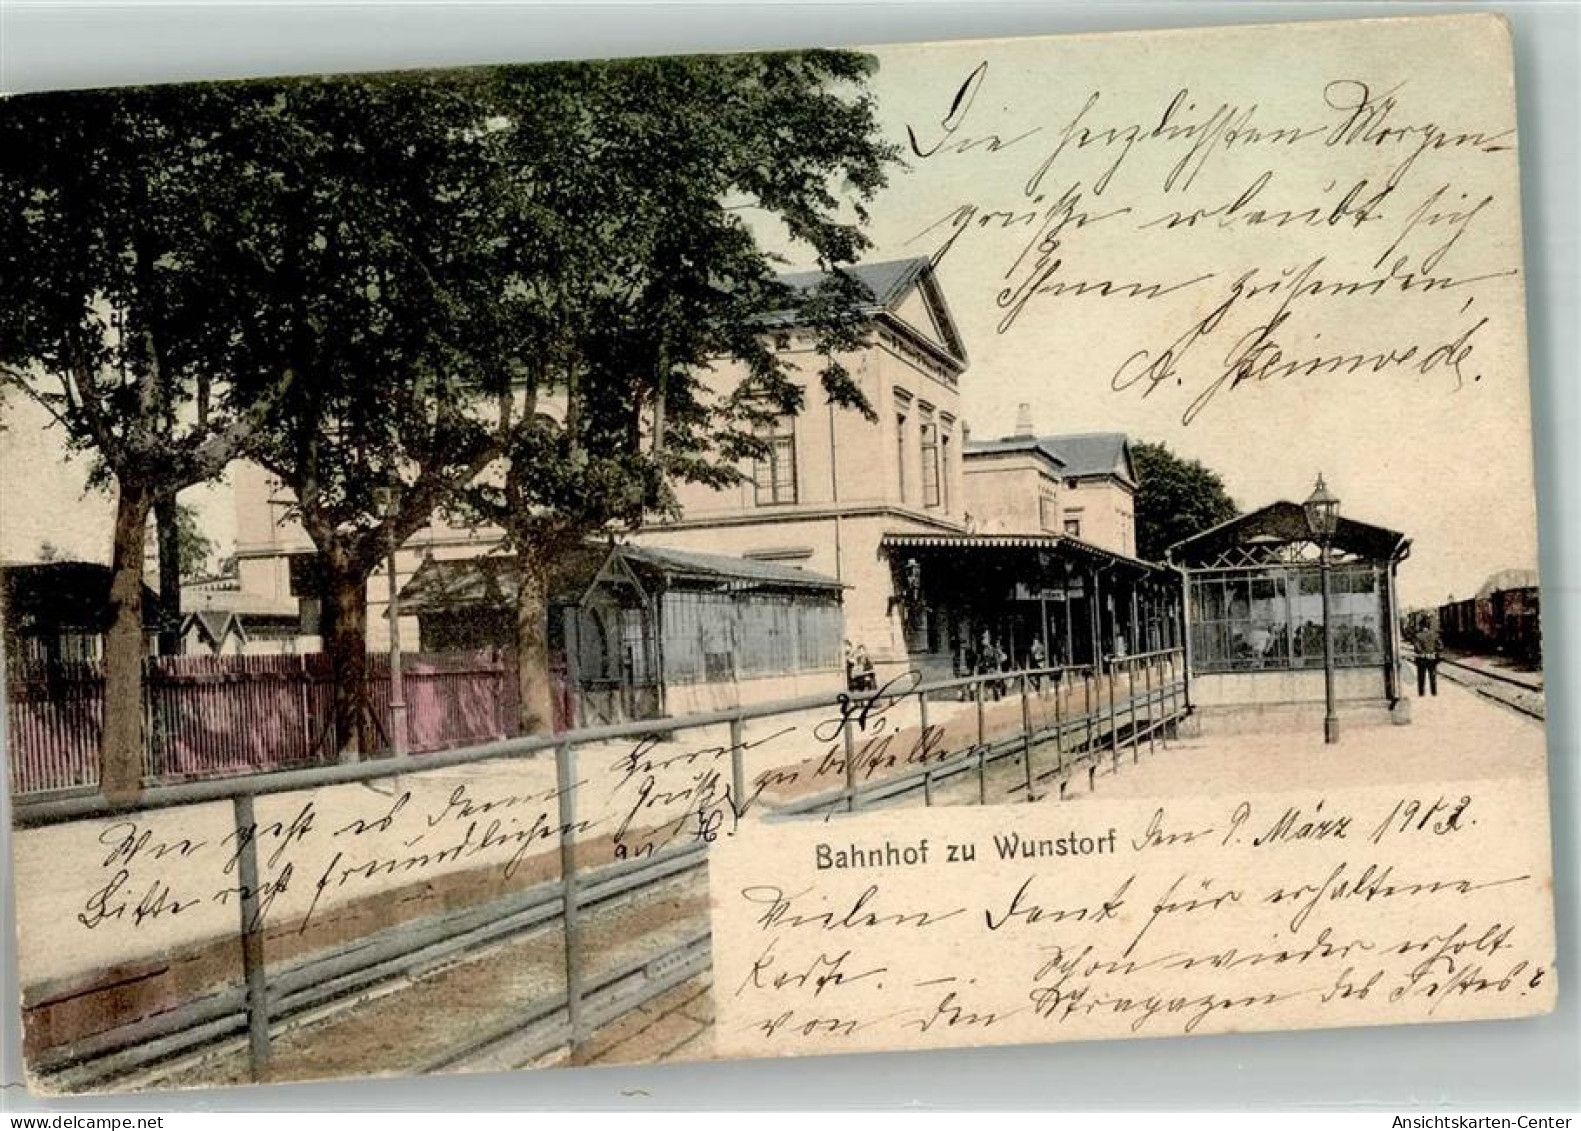 Die herzlichsten Morgen-
grüße erlaubt sich
Ihnen zusenden,
A. Steinwede.
Wie geht es denn Herrn H.
Bitte recht freundlichen Gruß zu bestellen
an H.
Bahnhof zu Wunstorf den 9. März 1903.
Vielen Dank für erhaltene
Karte. —. Schon wieder erholt
von den Strapazen des Festes?
www.oldthing.net
Ansichtskarten-Center